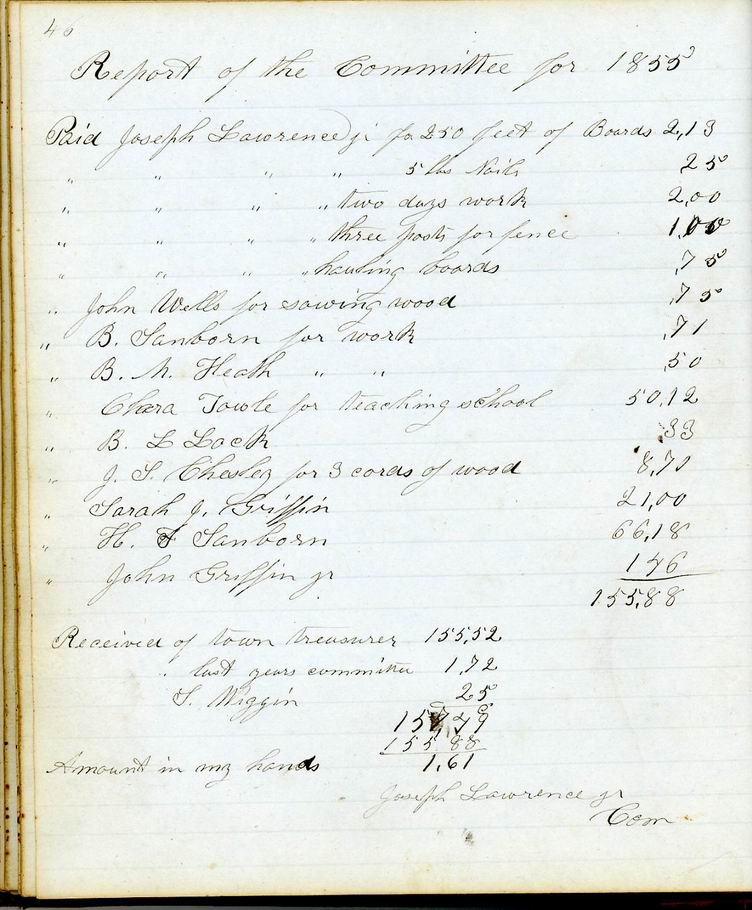 46
Report of the Committee for 1855
Paid Joseph Lawrence jr for 250 feet of Boards 2,13
" " " " 5 lbs Nails 25
" " " " two days work 2,00
" " " " three posts for fence 1,00
" " " " hauling boards ,75
" John Wells for sawing wood ,75
" B. Sanborn for work ,71
" B. M. Heath " " ,50
" Clara Towle for teaching school 50,12
" B. L Lock ,33
" J. S. Chesley for 3 cords of wood 8,70
" Sarah J. Griffin 21,00
" H. F Sanborn 66,18
" John Griffin jr 1 46
155,88
Received of town treasurer 155,52
" last years committee 1,72
S. Wiggin 25
157,49
155,88
Amount in my hands 1,61
Joseph Lawrence jr
Com